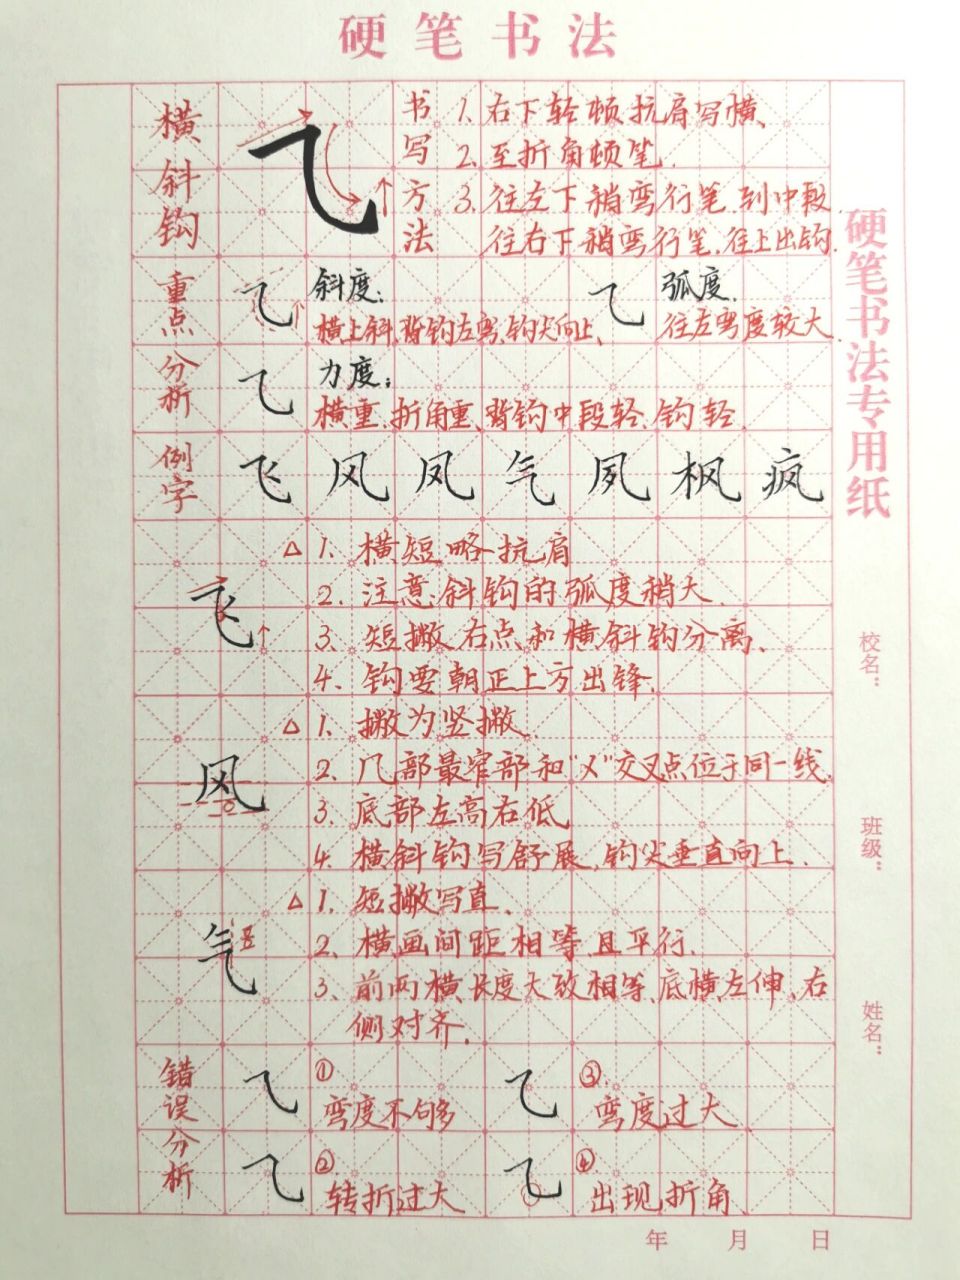 硬笔书法
横斜钩
书写方法
1. 右下轻顿抗肩写横、
2. 至折角顿笔.
3. 往左下稍弯行笔.到中段.
往右下稍弯行笔.往上出钩.
重点分析
斜度:
横上斜.背钩左弯.钩尖向上、
弧度.
往左弯度较大.
力度:
横重.折角重、背钩中段轻.钩轻.
例字
飞 风 凤 气 夙 枫 疯
飞
△ 1. 横短略抗肩
2. 注意:斜钩的弧度稍大.
3. 短撇右点和横斜钩分离、
4. 钩要朝正上方出锋.
风
△ 1. 撇为竖撇.
2. 几部最窄部和"乂"交叉点位于同一线.
3. 底部左高右低
4. 横斜钩写舒展.钩尖垂直向上.
气
△ 1. 短撇写直.
2. 横画间距相等且平行.
3. 前两横长度大致相等、底横左伸、右
侧对齐.
错误分析
① 弯度不够
② 转折过大
③ 弯度过大
④ 出现折角.
硬笔书法专用纸
校名:
班级:
姓名:
年 月 日